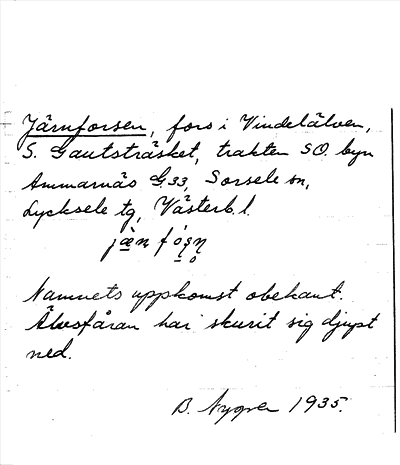 Järnforsen, fors i Vindelälven,
S. Gautsträsket, trakten SO. byn
Ammarnäs G.33, Sorsele sn,
Lycksele tg, Västerb. l.
jä̀n fó̱ṣn̥
Namnets uppkomst obekant.
Älvsfåran har skurit sig djupt
ned.
B. Nygren 1935.